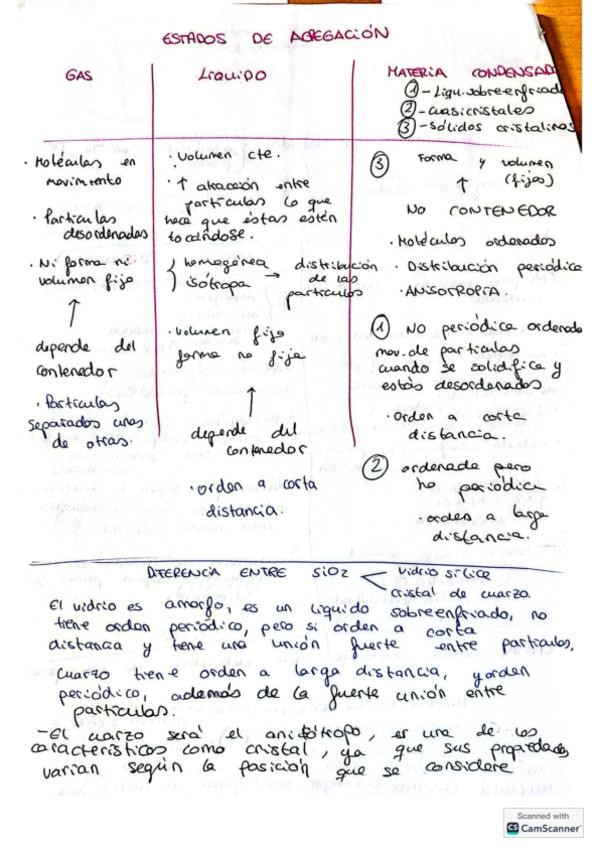 ESTADOS DE AGREGACIÓN
GAS
· Moléculas en
movimiento
· Partículas
desordenadas
· Ni forma ni
volumen fijo
↑
depende del
contenedor
· Partículas
separadas unas
de otras.
LIQUIDO
· Volumen cte.
· ↑ atracción entre
partículas lo que
hace que éstas estén
tocándose.
homogénea
isótropa → distribución
de las
partículos
· Volumen fijo
forma no fija
↑
depende del
contenedor
· orden a corta
distancia.
MATERIA CONDENSAD
① - Liqu. sobreenfriad
② - cuasicristales
③ - sólidos cristalinos
③ Forma y volumen
↑ (fijos)
NO CONTENEDOR
· Moléculas ordenados
· Distribución periódica
· ANISOTROPIA.
① NO periódica ordenada
mov. de partículas
cuando se solidifica y
estás desordenados
· orden a corta
distancia.
② ordenada pero
no periódica
· orden a larga
distancia.
DIFERENCIA ENTRE SiO2
vidrio sílice
cristal de cuarzo
El vidrio es amorfo, es un liquido sobreenfriado, no
tiene orden periódico, pero si orden a corta
distancia y tiene una unión fuerte entre partículas,
cuarzo tiene orden a larga distancia, y orden
periódico, además de la fuerte unión entre
partículas.
- El cuarzo será el anisótropo, es una de los
características como cristal, ya que sus propiedades
varían según la posición que se considere
Scanned with
CS CamScanner